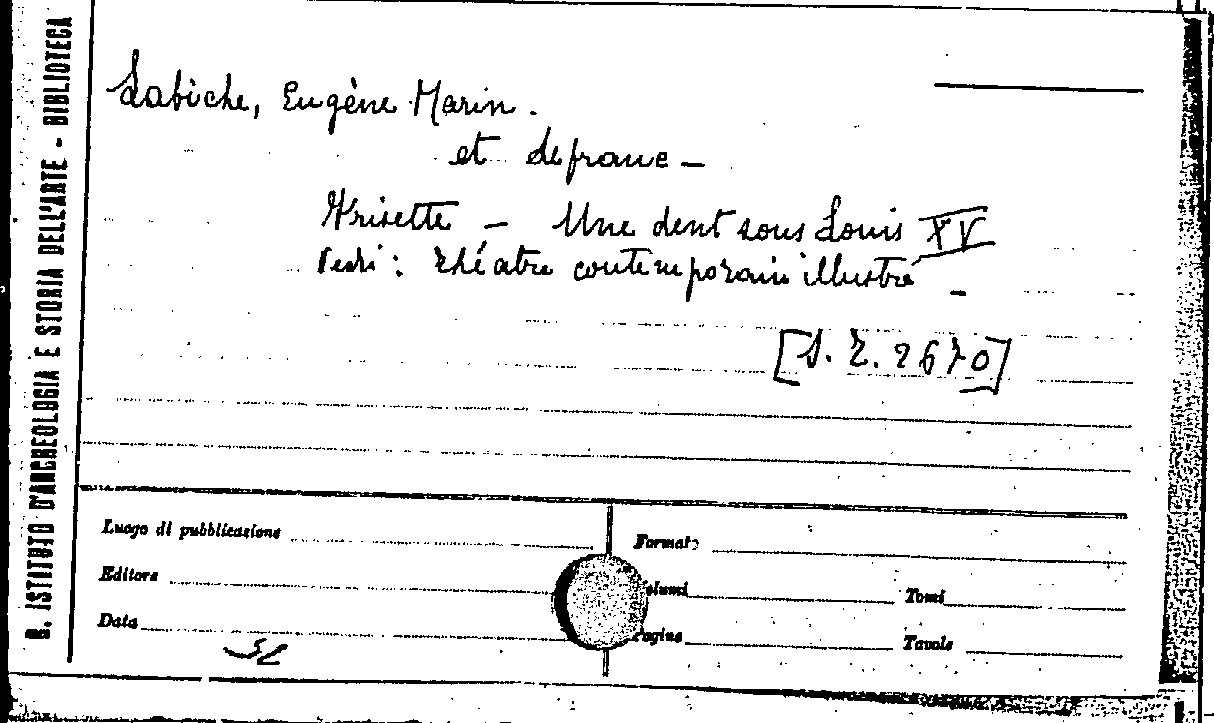 R. ISTITUTO D'ARCHEOLOGIA E STORIA DELL'ARTE - BIBLIOTECA
Labiche, Eugène Marin.
et defranc -
Grisette - Une dent sous Louis XV
Vedi: théatre contemporain illustré -
[S. Z. 2670]
Luogo di pubblicazione
Formato
Editore
Volumi
Tomi
Data
Pagine
Tavole